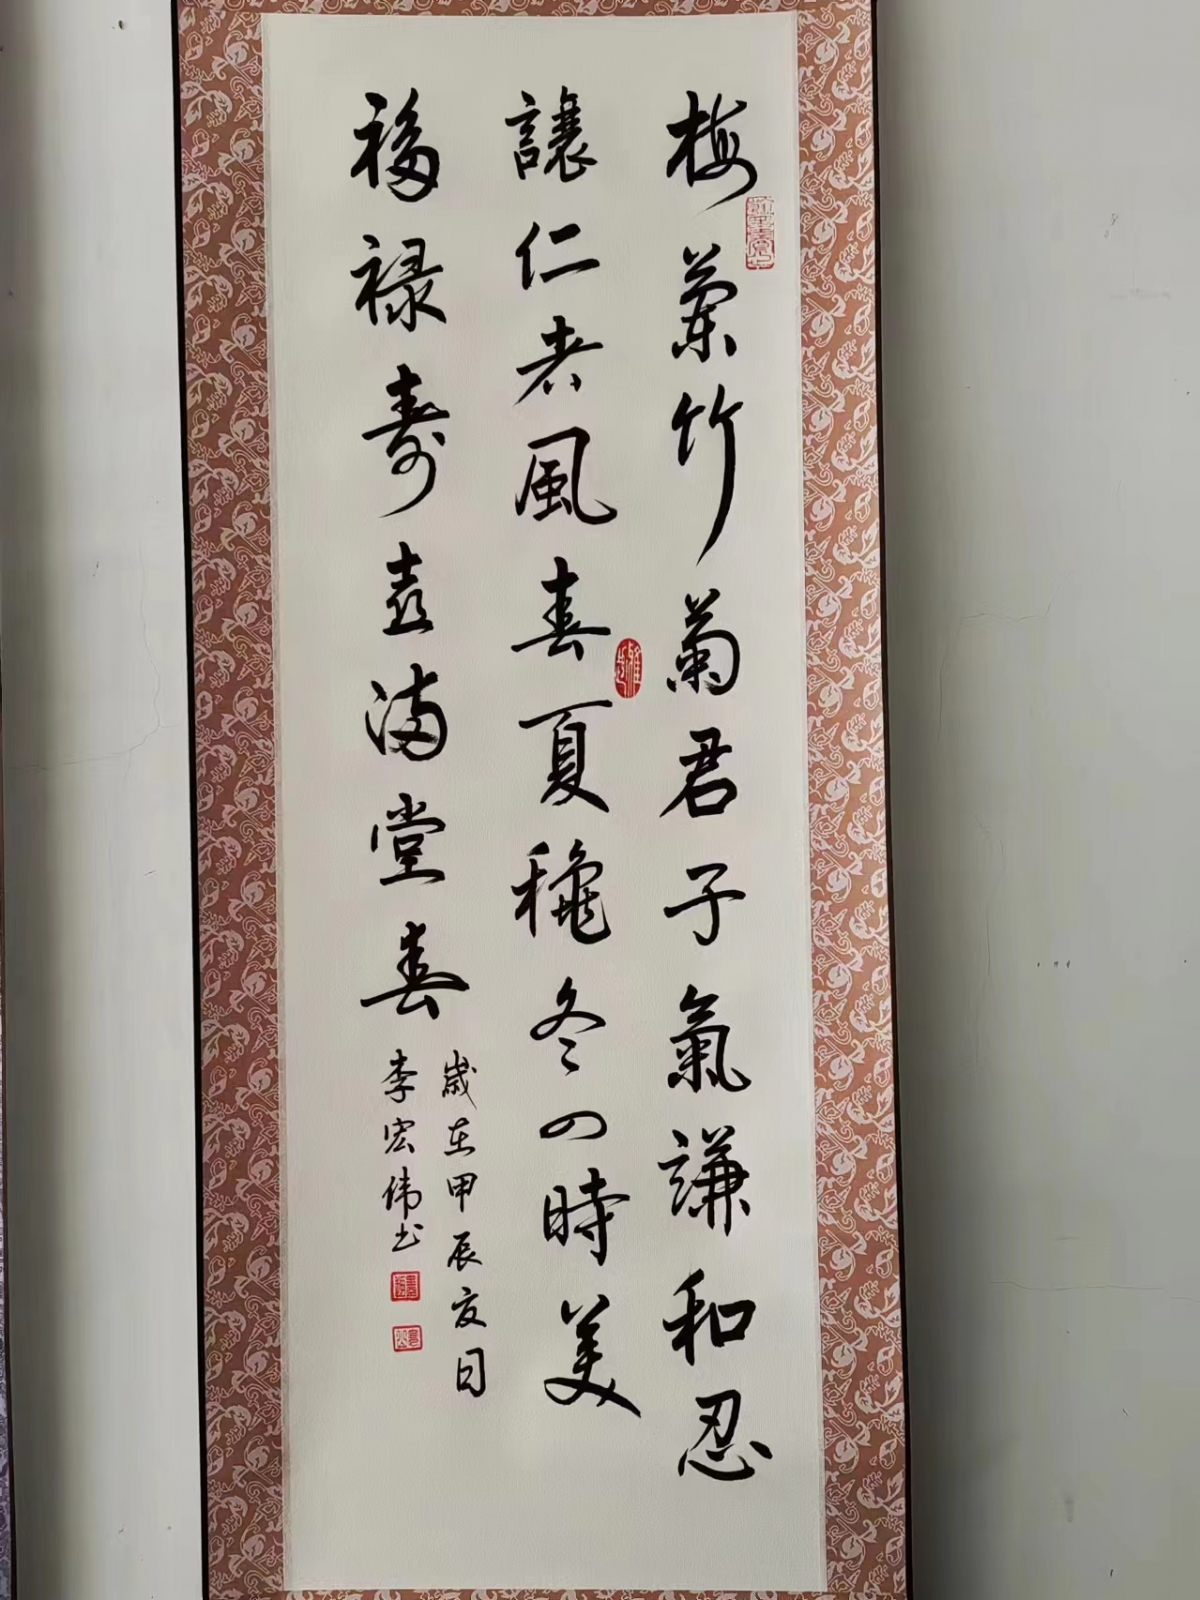 梅蘭竹菊君子氣謙和忍
讓仁者風春夏龝冬四時美
福禄壽喜满堂春
歲在甲辰夏日
李宏伟书